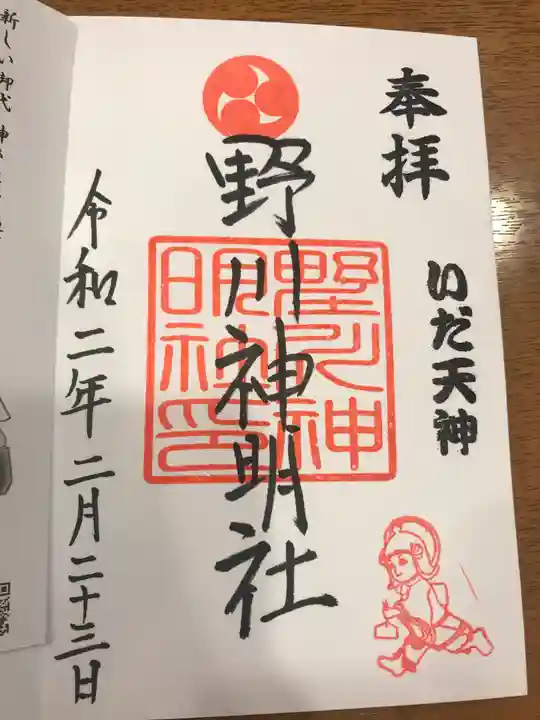 奉拝
いだ天神
野川神明社
野川神
明社印
令和二年二月二十三日
新しい御代